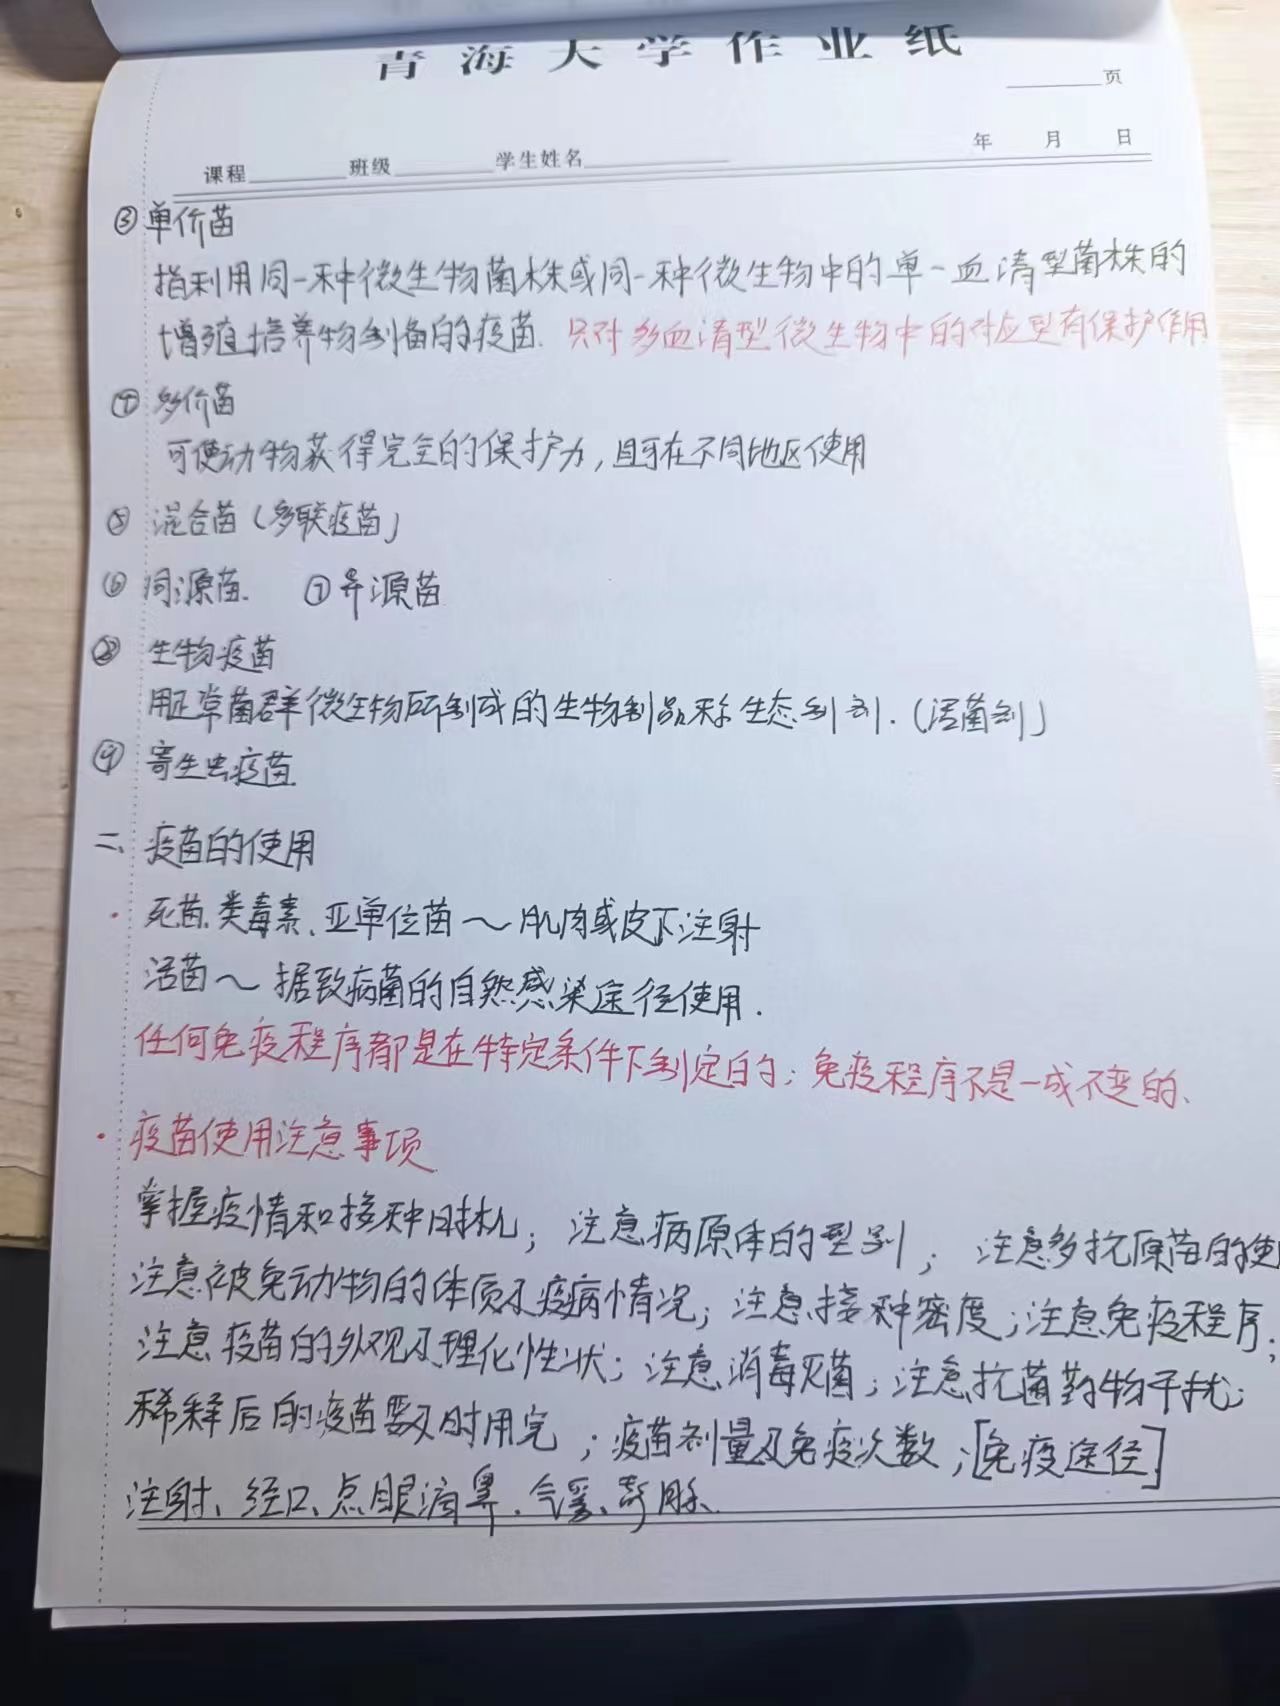 青海大学作业纸
页
年 月 日
课程 班级 学生姓名
③ 单价苗
指利用同一种微生物菌株或同一种微生物中的单一血清型菌株的
增殖培养物制备的疫苗. 只对多血清型微生物中的对应型有保护作用
④ 多价苗
可使动物获得完全的保护力,且可在不同地区使用
⑤ 混合苗(多联疫苗)
⑥ 同源苗. ⑦异源苗
⑧ 生物疫苗
用正常菌群微生物所制成的生物制品称生态制剂.(活菌剂)
⑨ 寄生虫疫苗.
二、疫苗的使用
· 死苗、类毒素、亚单位苗～肌肉或皮下注射
活苗～据致病菌的自然感染途径使用.
任何免疫程序都是在特定条件下制定的;免疫程序不是一成不变的、
· 疫苗使用注意事项
掌握疫情和接种时机; 注意病原体的型别; 注意多抗原苗的使
注意被免动物的体质及疫病情况; 注意接种密度;注意免疫程序;
注意疫苗的外观及理化性状; 注意消毒灭菌;注意抗菌药物干扰;
稀释后的疫苗要及时用完;疫苗剂量及免疫次数;[免疫途径]
注射、经口、点眼滴鼻、气雾、静脉.